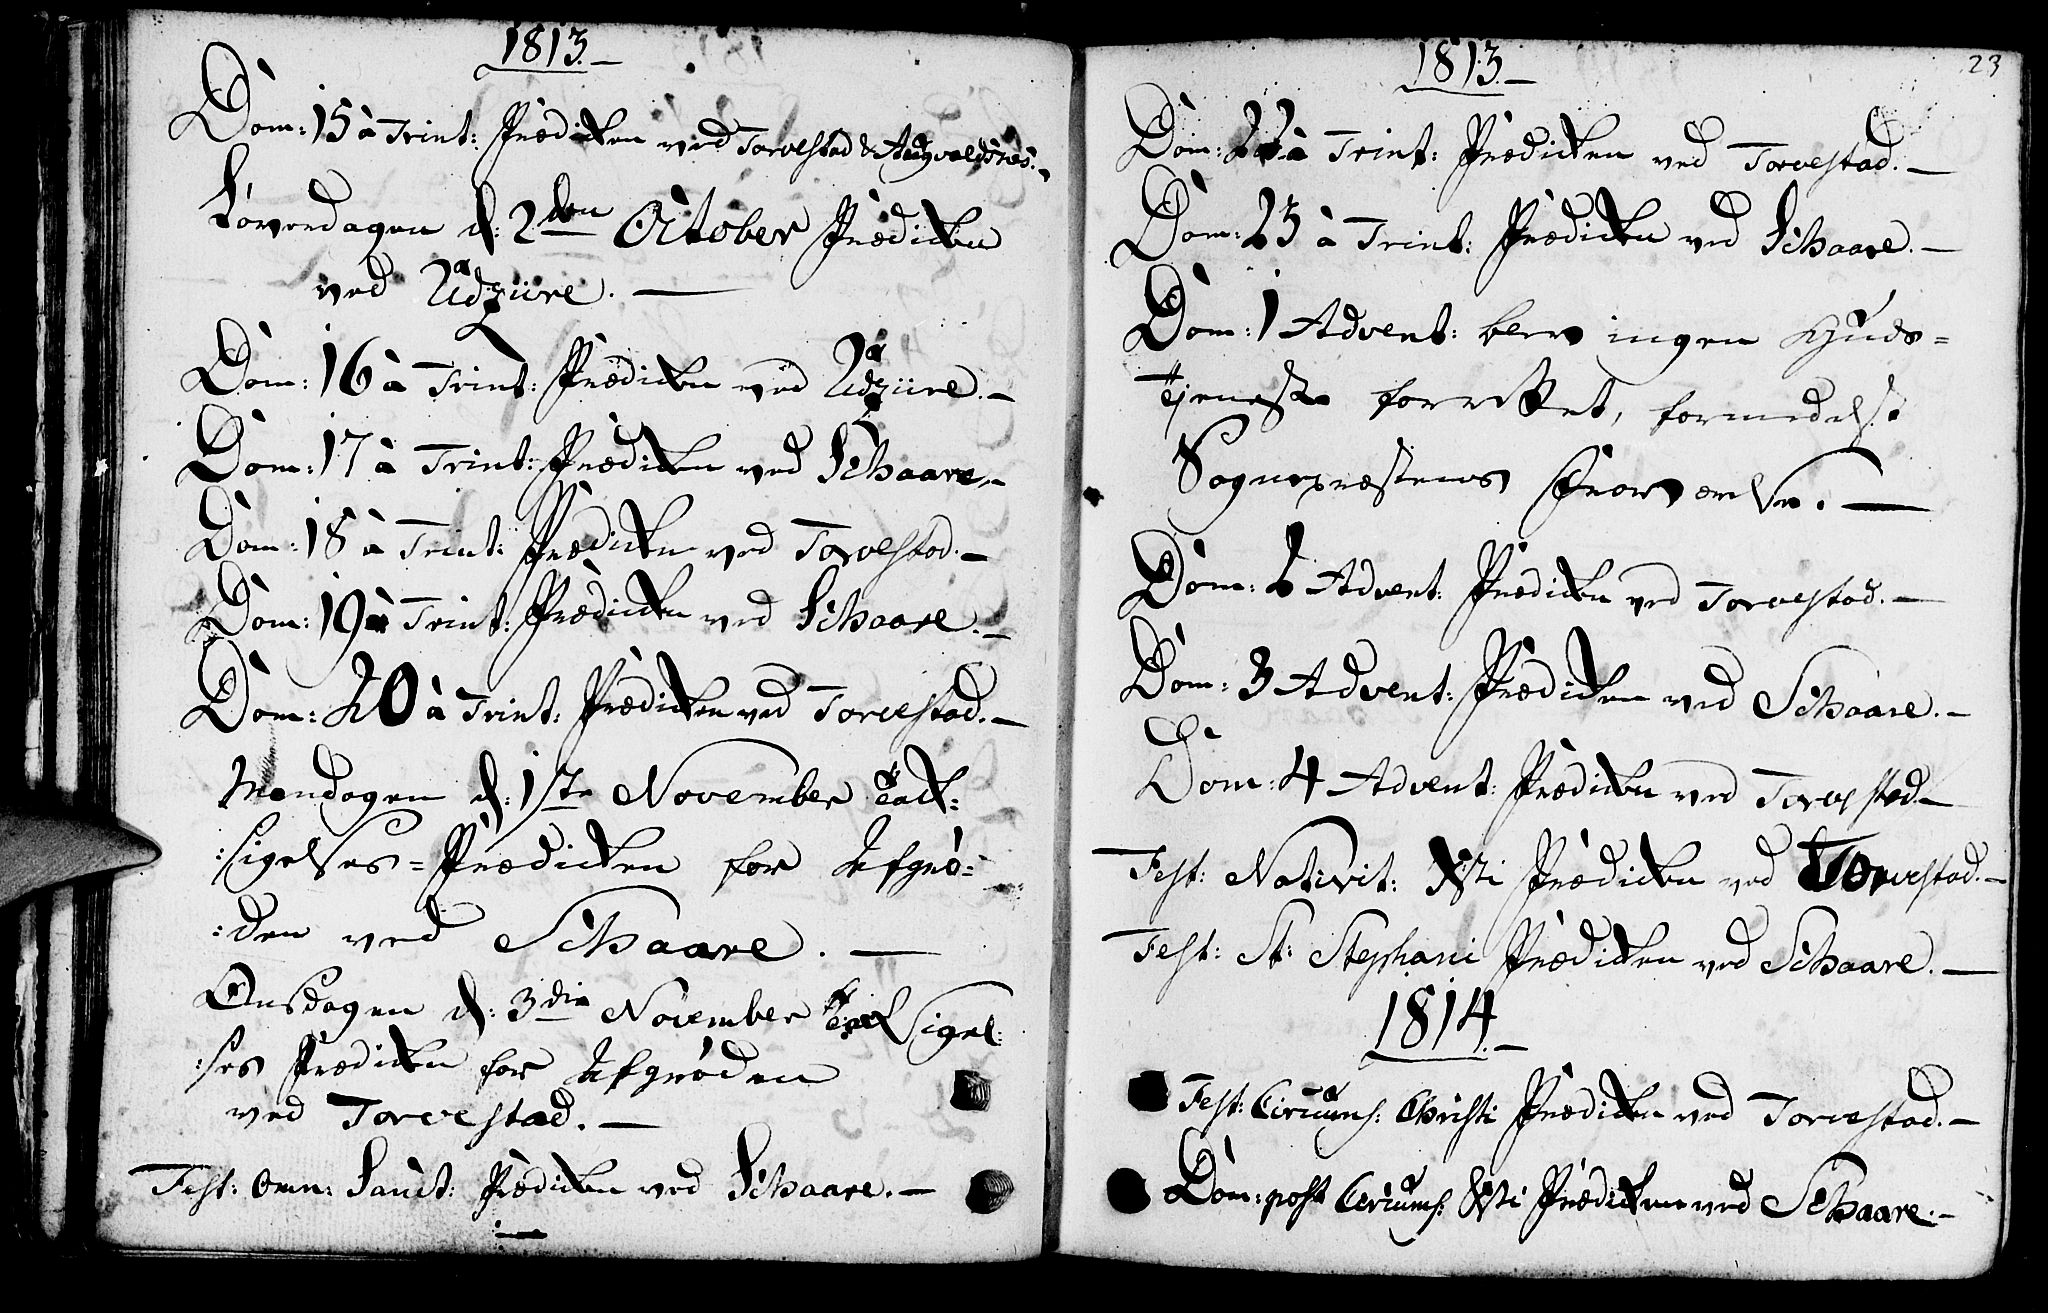 1813.
Dom: 15 à Trint: Prædicken ved Torvestad & Augvaldsnes.
Løverdagen d: 2den October Prædicken
ved Udziire.
Dom: 16 à Trint: Prædicken ved Udziire.
Dom: 17 à Trint: Prædicken ved Schaare.
Dom: 18 à Trint: Prædicken ved Torvestad.
Dom: 19 à Trint: Prædicken ved Schaare.
Dom: 20 à Trint: Prædicken ved Torvestad.
Mandagen d: 1ste November Tack-
:sigelses=Prædicken for Afgrø-
:den ved Schaare.
Onsdagen d: 3die November Tacksigel:
:ses Prædicken for Afgrøden
ved Torvestad.
Fest: Omn: Sanct: Prædicken ved Schaare.
1813.
23
Dom: 22 à Trint: Prædicken ved Torvestad.
Dom: 23 à Trint: Prædicken ved Schaare.
Dom: 1 Advent: blev ingen Guds=
Tjeneste forrettet, formedelst
Sognepræstens Fraværelse.
Dom: 2 Advent: Prædicken ved Torvestad.
Dom: 3 Advent: Prædicken ved Schaare.
Dom: 4 Advent: Prædicken ved Torvestad.
Fest: Nativit: Xsti Prædicken ved Torvestad.
Fest: St: Stephani Prædicken ved Schaare.
1814.
Fest: Circums: Christi Prædicken ved Torvestad.
Dom: post Circums: Xsti Prædicken ved Schaare.